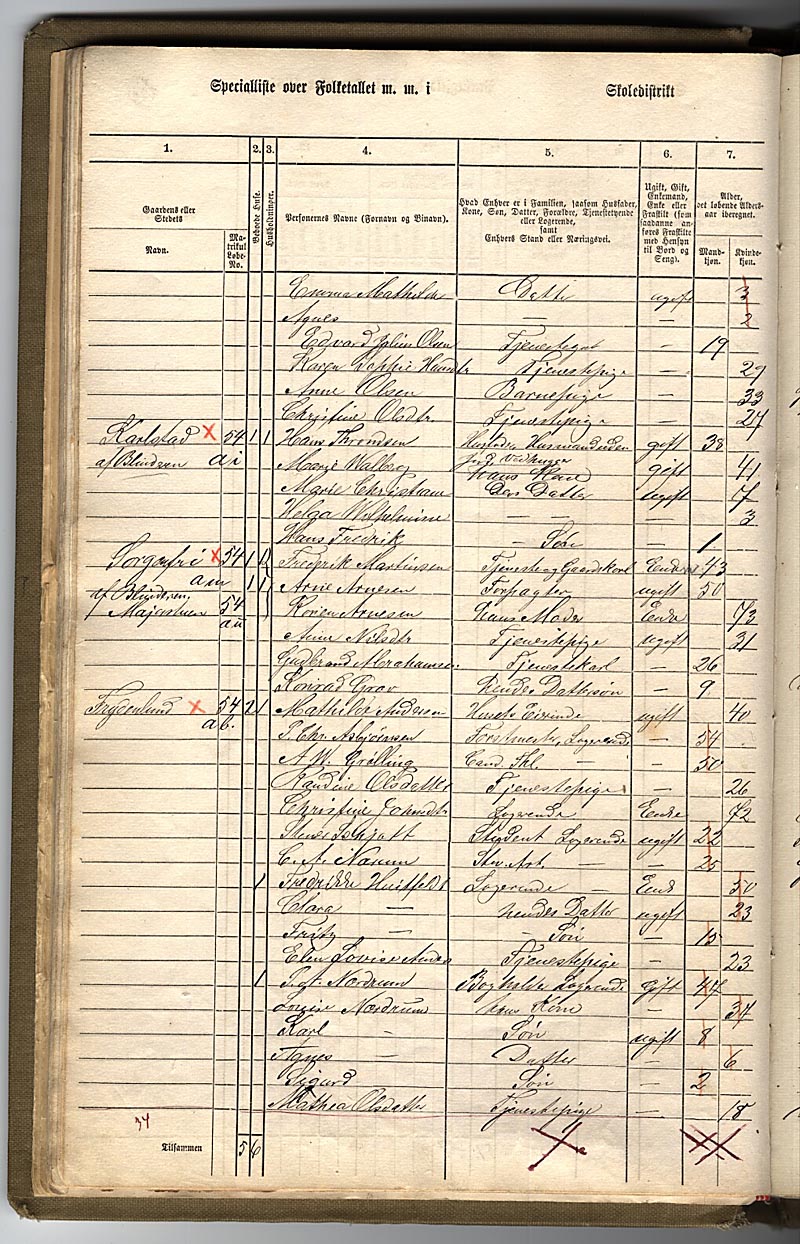 Specialliste over Folketallet m. m. i Skoledistrikt
1. 2. 3. 4. 5. 6. 7.
Gaardens eller Stedets
Navn.
Matrikul Løbe-No.
Beboede Huse.
Husholdninger.
Personernes Navne (Fornavn og Binavn).
Hvad Enhver er i Familien, saasom Husfader, Kone, Søn, Datter, Forældre, Tjenestetyende eller Logerende, samt Enhvers Stand eller Næringsvei.
Ugift, Gift, Enkemand, Enke eller Fraskilt (som saadanne anføres Fraskilte med Hensyn til Bord og Seng).
Alder, det løbende Alders-aar iberegnet.
Mand-kjøn. Kvinde-kjøn.
Emma Mathilde Datter ugift 3
Agnes — — 2
Edvard Julin Olsen Tjenestegut — 19
Karen Tjenestepige — 29
Anne Olsen Barnepige — 33
Christine Olsdtr Tjenestepige — 27
Karlstad 54 1 1 Hans Thronsen Husmand uden gift 38
af Blindern a i Jord Vedhugger
Marie Walborg Hans Kone gift 41
Marie Christiane Des Datter ugift 7
Helga Wilhelmine — — 3
Hans Fredrik — Søn — 1
Sorgenfri 54 1 1 Fredrik Martinsen Gaardskarl 43
am 1 1 Arne Arnesen Forpagter ugift 50
af Blinderen,
Majorstuen 54 Karen Arnesen Hans Moder Enke 73
an
Anne Nilsdtr Tjenestepige ugift 31
Gudbrand Abrahamsen Tjenestekarl — 26
Konrad Grav hendes Dattersøn — 9
Frydenlund 54 2 1 Mathilde Andersen Husets Eierinde ugift 40
a b.
P. Chr. Asbjørnsen Forstmester, Logerende — 54
A. W. Grølling Cand. — 50
Randine Olsdatter Tjenestepige — 26
Christine Logerende Enke 72
Student Logerende ugift 22
C. A. — — 25
1 Fredrikke Huitfeldt Logerende — Enke 50
Clara — hendes Datter ugift 23
Fritz — — Søn — 15
Elen Lovise Tjenestepige — 23
1 Nordrum Bogholder Logerende Gift 47
Lovise Nordrum hans Kone — 34
Karl — Søn ugift 8
Agnes — Datter — 6
Sigurd Søn — 2
Mathea Olsdatter Tjenestepige — 18
34
Tilsammen 5 6